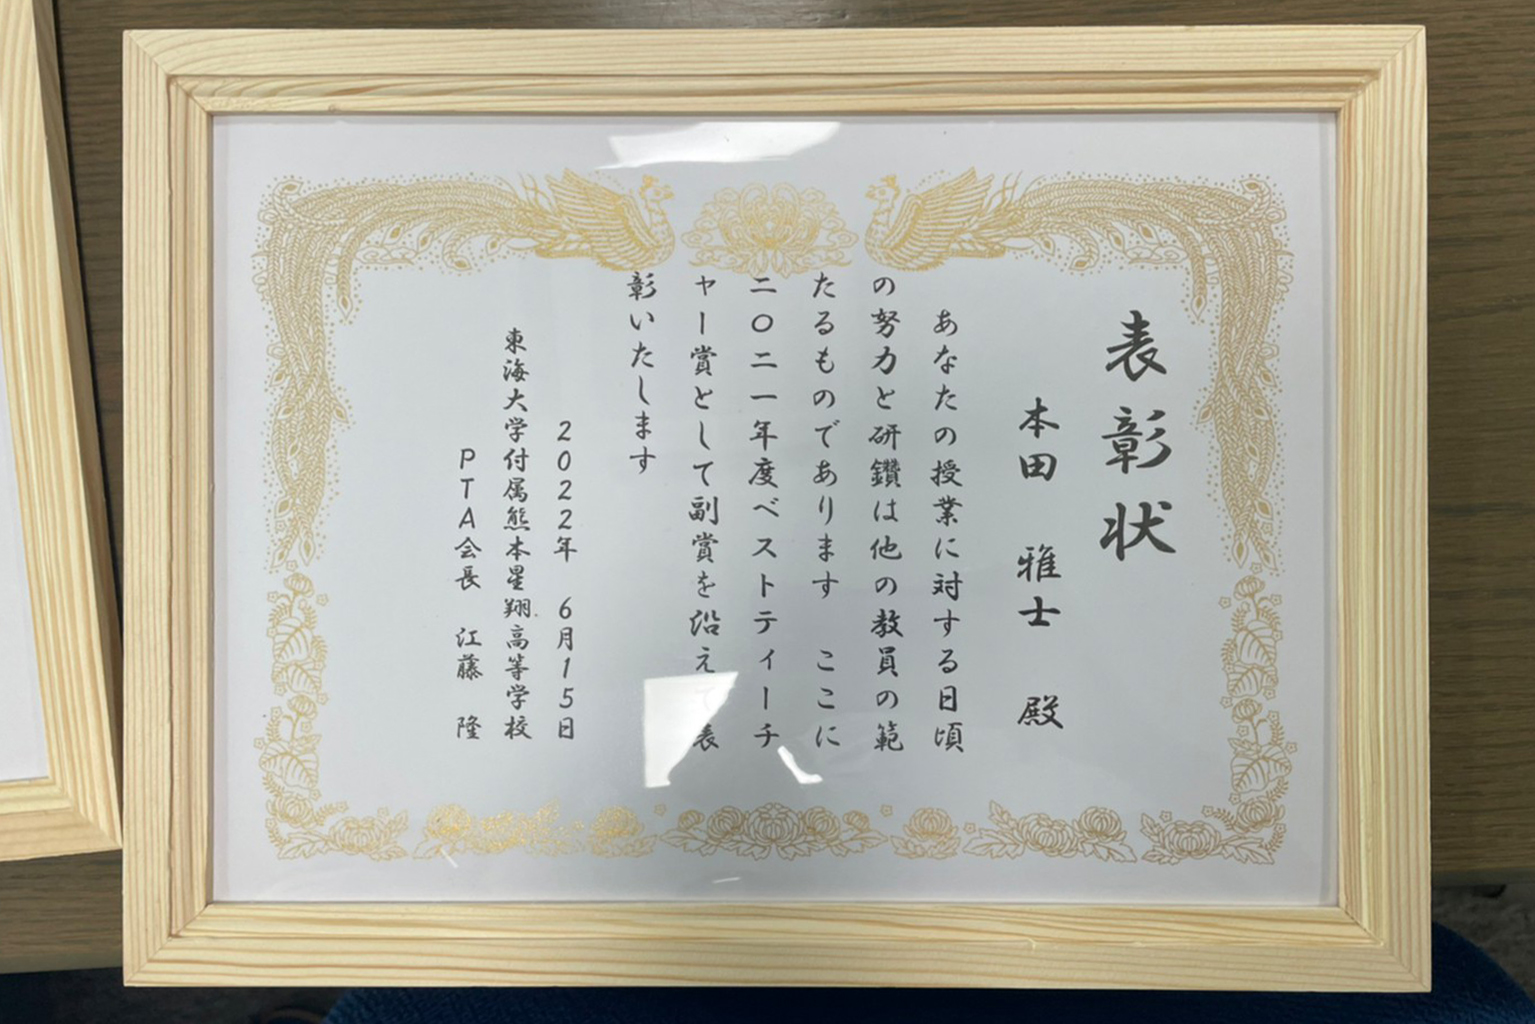 表彰状
本田 雅士 殿
あなたの授業に対する日頃
の努力と研鑽は他の教員の範
たるものであります ここに
二〇二一年度ベストティーチ
ャー賞として副賞を沿えて表
彰いたします
2022年 6月15日
東海大学付属熊本星翔高等学校
PTA会長 江藤 隆